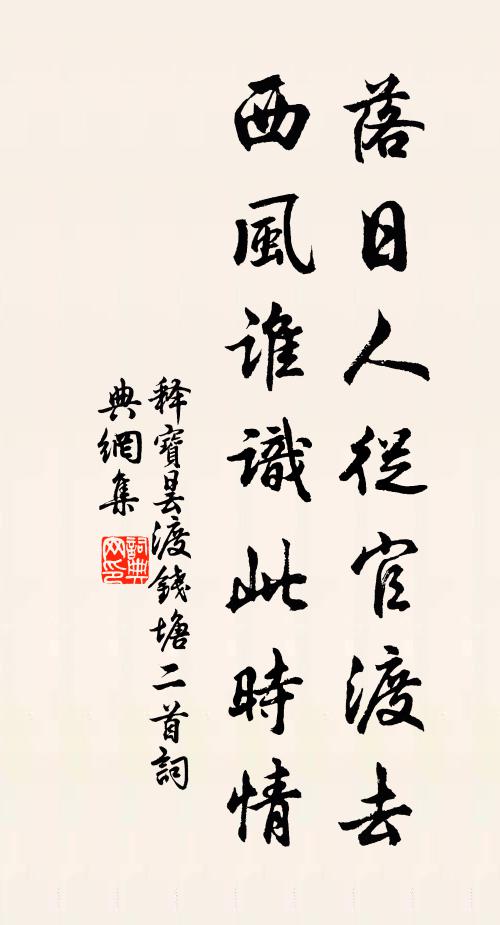 落日人從官渡去
西風誰識此時情
释寶曇渡錢塘二首詞
典網集
詞典
网印